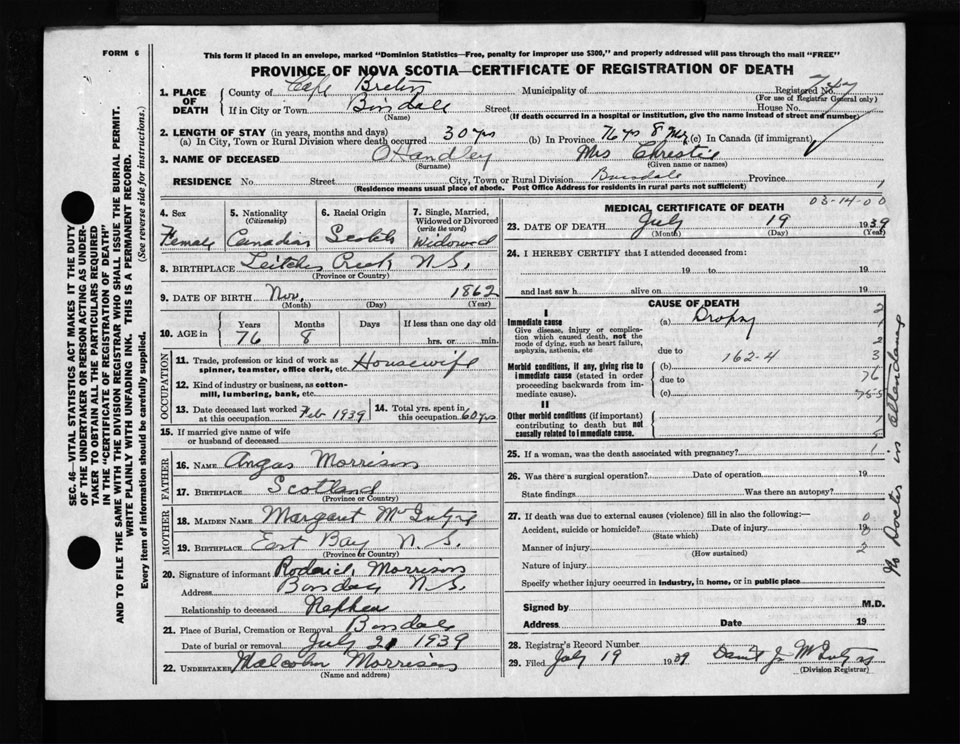 FORM 6
This form if placed in an envelope, marked "Dominion Statistics—Free, penalty for improper use $300," and properly addressed will pass through the mail "FREE"
PROVINCE OF NOVA SCOTIA—CERTIFICATE OF REGISTRATION OF DEATH
1. PLACE OF DEATH
County of Cape Breton Municipality of Registered No.
(For use of Registrar General only)
If in City or Town Street House No.
(Name) (If death occurred in a hospital or institution, give the name instead of street and number)
2. LENGTH OF STAY (in years, months and days)
(a) In City, Town or Rural Division where death occurred 30 yrs (b) In Province 76 yrs 8 Ms (c) In Canada (if immigrant)
3. NAME OF DECEASED OHandley Mrs Christie
(Surname) (Given name or names)
RESIDENCE No. Street City, Town or Rural Division Province
(Residence means usual place of abode. Post Office Address for residents in rural parts not sufficient)
4. Sex Female
5. Nationality (Citizenship) Canadian
6. Racial Origin Scotch
7. Single, Married, Widowed or Divorced (write the word) Widowed
8. BIRTHPLACE Leitches Creek N.S.
(Province or Country)
9. DATE OF BIRTH Nov. 1862
(Month) (Day) (Year)
10. AGE in Years 76 Months 8 Days If less than one day old hrs. or min.
OCCUPATION
11. Trade, profession or kind of work as spinner, teamster, office clerk, etc. Housewife
12. Kind of industry or business, as cotton-mill, lumbering, bank, etc.
13. Date deceased last worked at this occupation Feb 1939
14. Total yrs. spent in this occupation 60 yrs
15. If married give name of wife or husband of deceased
FATHER
16. NAME Angus Morrison
17. BIRTHPLACE Scotland
(Province or Country)
MOTHER
18. MAIDEN NAME Margaret McIntyre
19. BIRTHPLACE East Bay N.S.
(Province or Country)
20. Signature of informant Roderick Morrison
Address N.S.
Relationship to deceased Nephew
21. Place of Burial, Cremation or Removal
Date of burial or removal July 21 1939
22. UNDERTAKER Malcolm Morrison
(Name and address)
03-14-00
MEDICAL CERTIFICATE OF DEATH
23. DATE OF DEATH July 19 1939
(Month) (Day) (Year)
24. I HEREBY CERTIFY that I attended deceased from:
19 to 19
and last saw h alive on 19
CAUSE OF DEATH
I
Immediate cause (a) Dropsy
Give disease, injury or complication which caused death, not the mode of dying, such as heart failure, asphyxia, asthenia, etc
due to 162-4
Morbid conditions, if any, giving rise to immediate cause (stated in order proceeding backwards from immediate cause).
(b)
due to
(c)
II
Other morbid conditions (if important) contributing to death but not causally related to immediate cause.
25. If a woman, was the death associated with pregnancy?
26. Was there a surgical operation? Date of operation 19
State findings Was there an autopsy?
27. If death was due to external causes (violence) fill in also the following:—
Accident, suicide or homicide? Date of injury 19
(State which)
Manner of injury
(How sustained)
Nature of injury
Specify whether injury occurred in industry, in home, or in public place
Signed by M.D.
Address Date 19
28. Registrar's Record Number
29. Filed July 19 1939
(Division Registrar)
No Doctor in attendance
SEC. 46—VITAL STATISTICS ACT MAKES IT THE DUTY
OF THE UNDERTAKER OR PERSON ACTING AS UNDER-
TAKER TO OBTAIN ALL THE PARTICULARS REQUIRED
IN THE "CERTIFICATE OF REGISTRATION OF DEATH"
AND TO FILE THE SAME WITH THE DIVISION REGISTRAR WHO SHALL ISSUE THE BURIAL PERMIT.
WRITE PLAINLY WITH UNFADING INK. THIS IS A PERMANENT RECORD.
Every item of information should be carefully supplied. (See reverse side for instructions.)